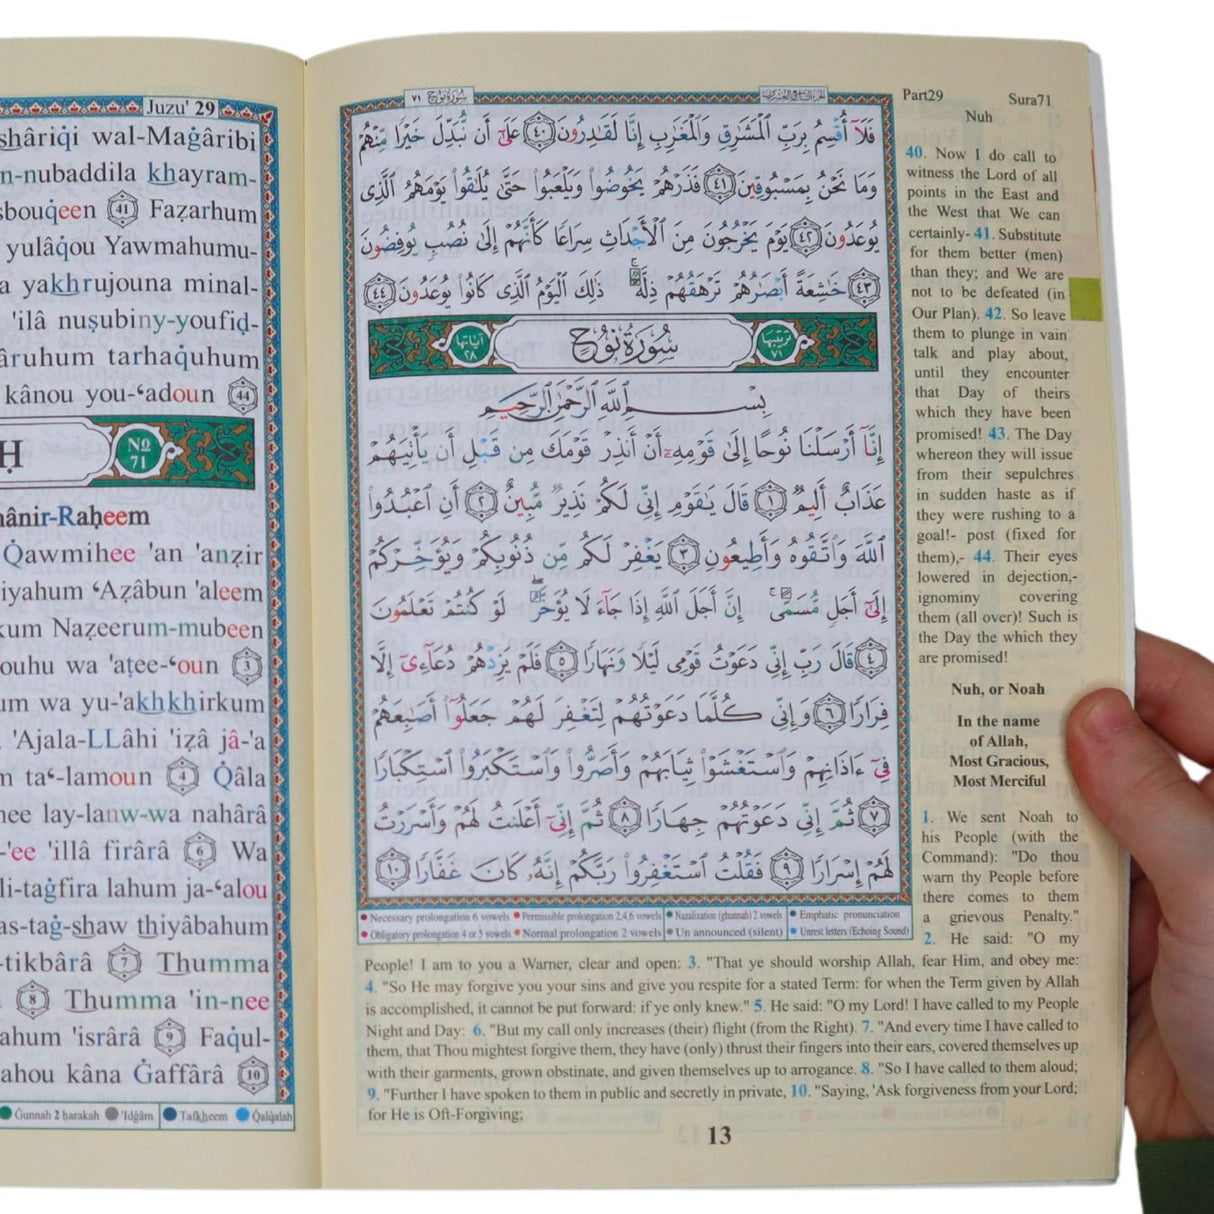 Juzu' 29
shâriqi wal-Maġâribi
n-nubaddila khayram-
sbouq̇een 41 Faẓarhum
yulâq̇ou Yawmahumu-
a yakhrujouna minal-
'ilâ nuṣubiny-youfiḍ-
âruhum tarhaq̇uhum
kânou you-‘adoun 44
Ḥ
No 71
ânir-Raḥeem
Q̇awmihee 'an 'anẓir
iyahum ‘Aẓâbun 'aleem
kum Naẓeerum-mubeen
ouhu wa 'aṭee-‘oun 3
um wa yu-'akhkhirkum
'Ajala-LLâhi 'iẓâ jâ-'a
m ta‘-lamoun 4 Q̇âla
nee lay-lanw-wa nahârâ
-'ee 'illâ firârâ 6 Wa
li-taġfira lahum ja-‘alou
as-taġ-shaw thiyâbahum
-tikbârâ 7 Thumma
8 Thumma 'in-nee
ahum 'isrârâ 9 Faq̇ul-
ahou kâna Ġaffârâ 10
Ġunnah 2 ḥarakah 'Idġâm Tafkheem Q̇alq̇alah
سُورَةُ نُوحٍ ٧١
الجزء التاسع والعشرون
فَلَآ أُقۡسِمُ بِرَبِّ ٱلۡمَشَٰرِقِ وَٱلۡمَغَٰرِبِ إِنَّا لَقَٰدِرُونَ ٤٠ عَلَىٰٓ أَن نُّبَدِّلَ خَيۡرٗا مِّنۡهُمۡ
وَمَا نَحۡنُ بِمَسۡبُوقِينَ ٤١ فَذَرۡهُمۡ يَخُوضُواْ وَيَلۡعَبُواْ حَتَّىٰ يُلَٰقُواْ يَوۡمَهُمُ ٱلَّذِي
يُوعَدُونَ ٤٢ يَوۡمَ يَخۡرُجُونَ مِنَ ٱلۡأَجۡدَاثِ سِرَاعٗا كَأَنَّهُمۡ إِلَىٰ نُصُبٖ يُوفِضُونَ
٤٣ خَٰشِعَةً أَبۡصَٰرُهُمۡ تَرۡهَقُهُمۡ ذِلَّةٞۚ ذَٰلِكَ ٱلۡيَوۡمُ ٱلَّذِي كَانُواْ يُوعَدُونَ ٤٤
ترتيبها ٧١ سُورَةُ نُوحٍ آياتها ٢٨
بِسۡمِ ٱللَّهِ ٱلرَّحۡمَٰنِ ٱلرَّحِيمِ
إِنَّآ أَرۡسَلۡنَا نُوحًا إِلَىٰ قَوۡمِهِۦٓ أَنۡ أَنذِرۡ قَوۡمَكَ مِن قَبۡلِ أَن يَأۡتِيَهُمۡ
عَذَابٌ أَلِيمٞ ١ قَالَ يَٰقَوۡمِ إِنِّي لَكُمۡ نَذِيرٞ مُّبِينٌ ٢ أَنِ ٱعۡبُدُواْ
ٱللَّهَ وَٱتَّقُوهُ وَأَطِيعُونِ ٣ يَغۡفِرۡ لَكُم مِّن ذُنُوبِكُمۡ وَيُؤَخِّرۡكُمۡ
إِلَىٰٓ أَجَلٖ مُّسَمًّىۚ إِنَّ أَجَلَ ٱللَّهِ إِذَا جَآءَ لَا يُؤَخَّرُۖ لَوۡ كُنتُمۡ تَعۡلَمُونَ
٤ قَالَ رَبِّ إِنِّي دَعَوۡتُ قَوۡمِي لَيۡلٗا وَنَهَارٗا ٥ فَلَمۡ يَزِدۡهُمۡ دُعَآءِيٓ إِلَّا
فِرَارٗا ٦ وَإِنِّي كُلَّمَا دَعَوۡتُهُمۡ لِتَغۡفِرَ لَهُمۡ جَعَلُوٓاْ أَصَٰبِعَهُمۡ
فِيٓ ءَاذَانِهِمۡ وَٱسۡتَغۡشَوۡاْ ثِيَابَهُمۡ وَأَصَرُّواْ وَٱسۡتَكۡبَرُواْ ٱسۡتِكۡبَارٗا
٧ ثُمَّ إِنِّي دَعَوۡتُهُمۡ جِهَارٗا ٨ ثُمَّ إِنِّيٓ أَعۡلَنتُ لَهُمۡ وَأَسۡرَرۡتُ
لَهُمۡ إِسۡرَارٗا ٩ فَقُلۡتُ ٱسۡتَغۡفِرُواْ رَبَّكُمۡ إِنَّهُۥ كَانَ غَفَّارٗا ١٠
Necessary prolongation 6 vowels Permissible prolongation 2,4,6 vowels Nazalization (ghunnah) 2 vowels Emphatic pronunciation
Obligatory prolongation 4 or 5 vowels Normal prolongation 2 vowels Un announced (silent) Unrest letters (Echoing Sound)
Part29 Sura71
Nuh
40. Now I do call to
witness the Lord of all
points in the East and
the West that We can
certainly- 41. Substitute
for them better (men)
than they; and We are
not to be defeated (in
Our Plan). 42. So leave
them to plunge in vain
talk and play about,
until they encounter
that Day of theirs
which they have been
promised! 43. The Day
whereon they will issue
from their sepulchres
in sudden haste as if
they were rushing to a
goal!- post (fixed for
them),- 44. Their eyes
lowered in dejection,-
ignominy covering
them (all over)! Such is
the Day the which they
are promised!
Nuh, or Noah
In the name
of Allah,
Most Gracious,
Most Merciful
1. We sent Noah to
his People (with the
Command): "Do thou
warn thy People before
there comes to them
a grievous Penalty."
2. He said: "O my
People! I am to you a Warner, clear and open: 3. "That ye should worship Allah, fear Him, and obey me:
4. "So He may forgive you your sins and give you respite for a stated Term: for when the Term given by Allah
is accomplished, it cannot be put forward: if ye only knew." 5. He said: "O my Lord! I have called to my People
Night and Day: 6. "But my call only increases (their) flight (from the Right). 7. "And every time I have called to
them, that Thou mightest forgive them, they have (only) thrust their fingers into their ears, covered themselves up
with their garments, grown obstinate, and given themselves up to arrogance. 8. "So I have called to them aloud;
9. "Further I have spoken to them in public and secretly in private, 10. "Saying, 'Ask forgiveness from your Lord;
for He is Oft-Forgiving;
13